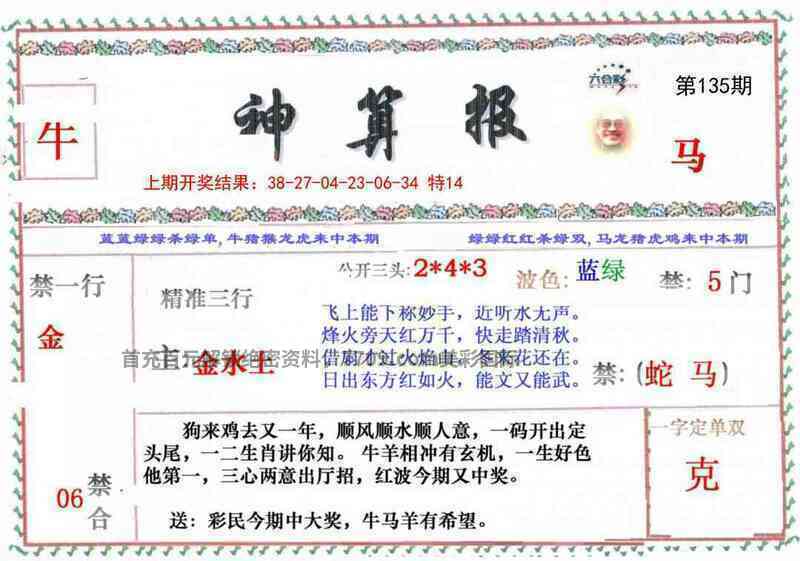 六合彩
第135期
神算报
牛
马
上期开奖结果：38-27-04-23-06-34 特14
蓝蓝绿绿杀绿单,牛猪猴龙虎来中本期
绿绿红红杀绿双,马龙猪虎鸡来中本期
公开三头:2*4*3
波色:蓝绿
禁:5门
禁一行
金
精准三行
主:金水土
飞上能下称妙手，近听水无声。
烽火旁天红万千，快走踏清秋。
日出东方红如火，能文又能武。
禁:(蛇 马)
狗来鸡去又一年，顺风顺水顺人意，一码开出定
头尾，一二生肖讲你知。牛羊相冲有玄机，一生好色
他第一，三心两意出厅招，红波今期又中奖。
送：彩民今期中大奖，牛马羊有希望。
06
禁合
一字定单双
克